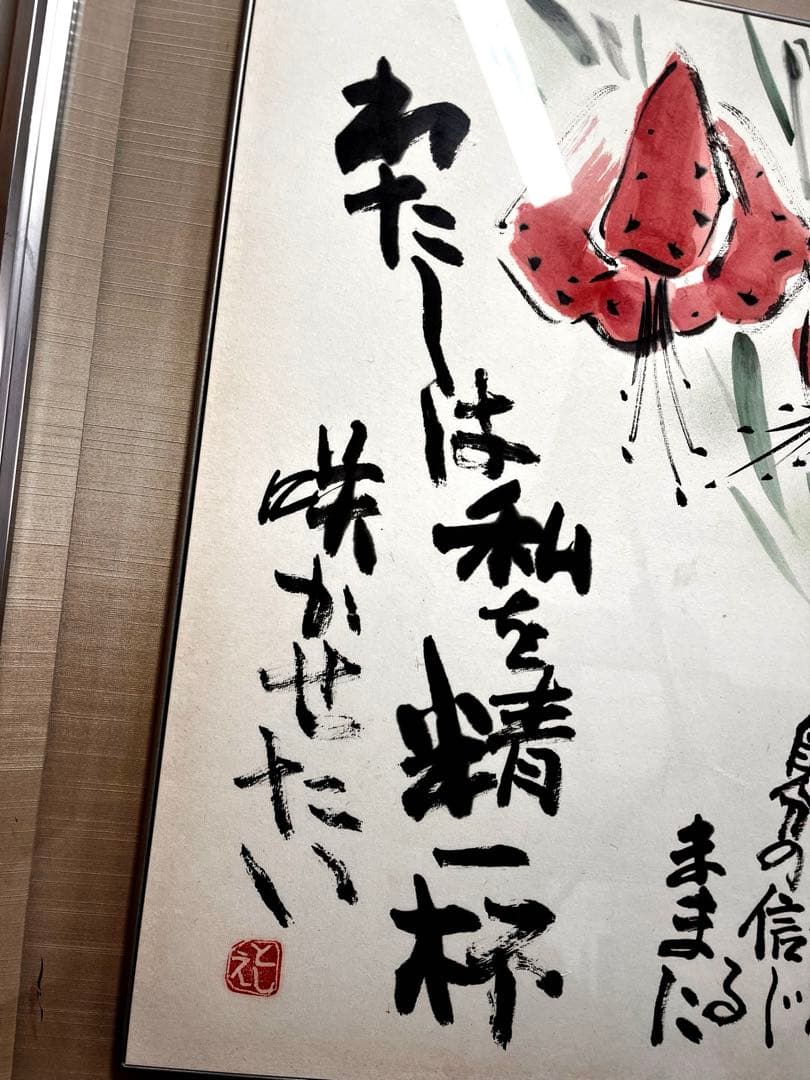 自分の信じる
ままに
わたしは私を精一杯
咲かせたい
としえ